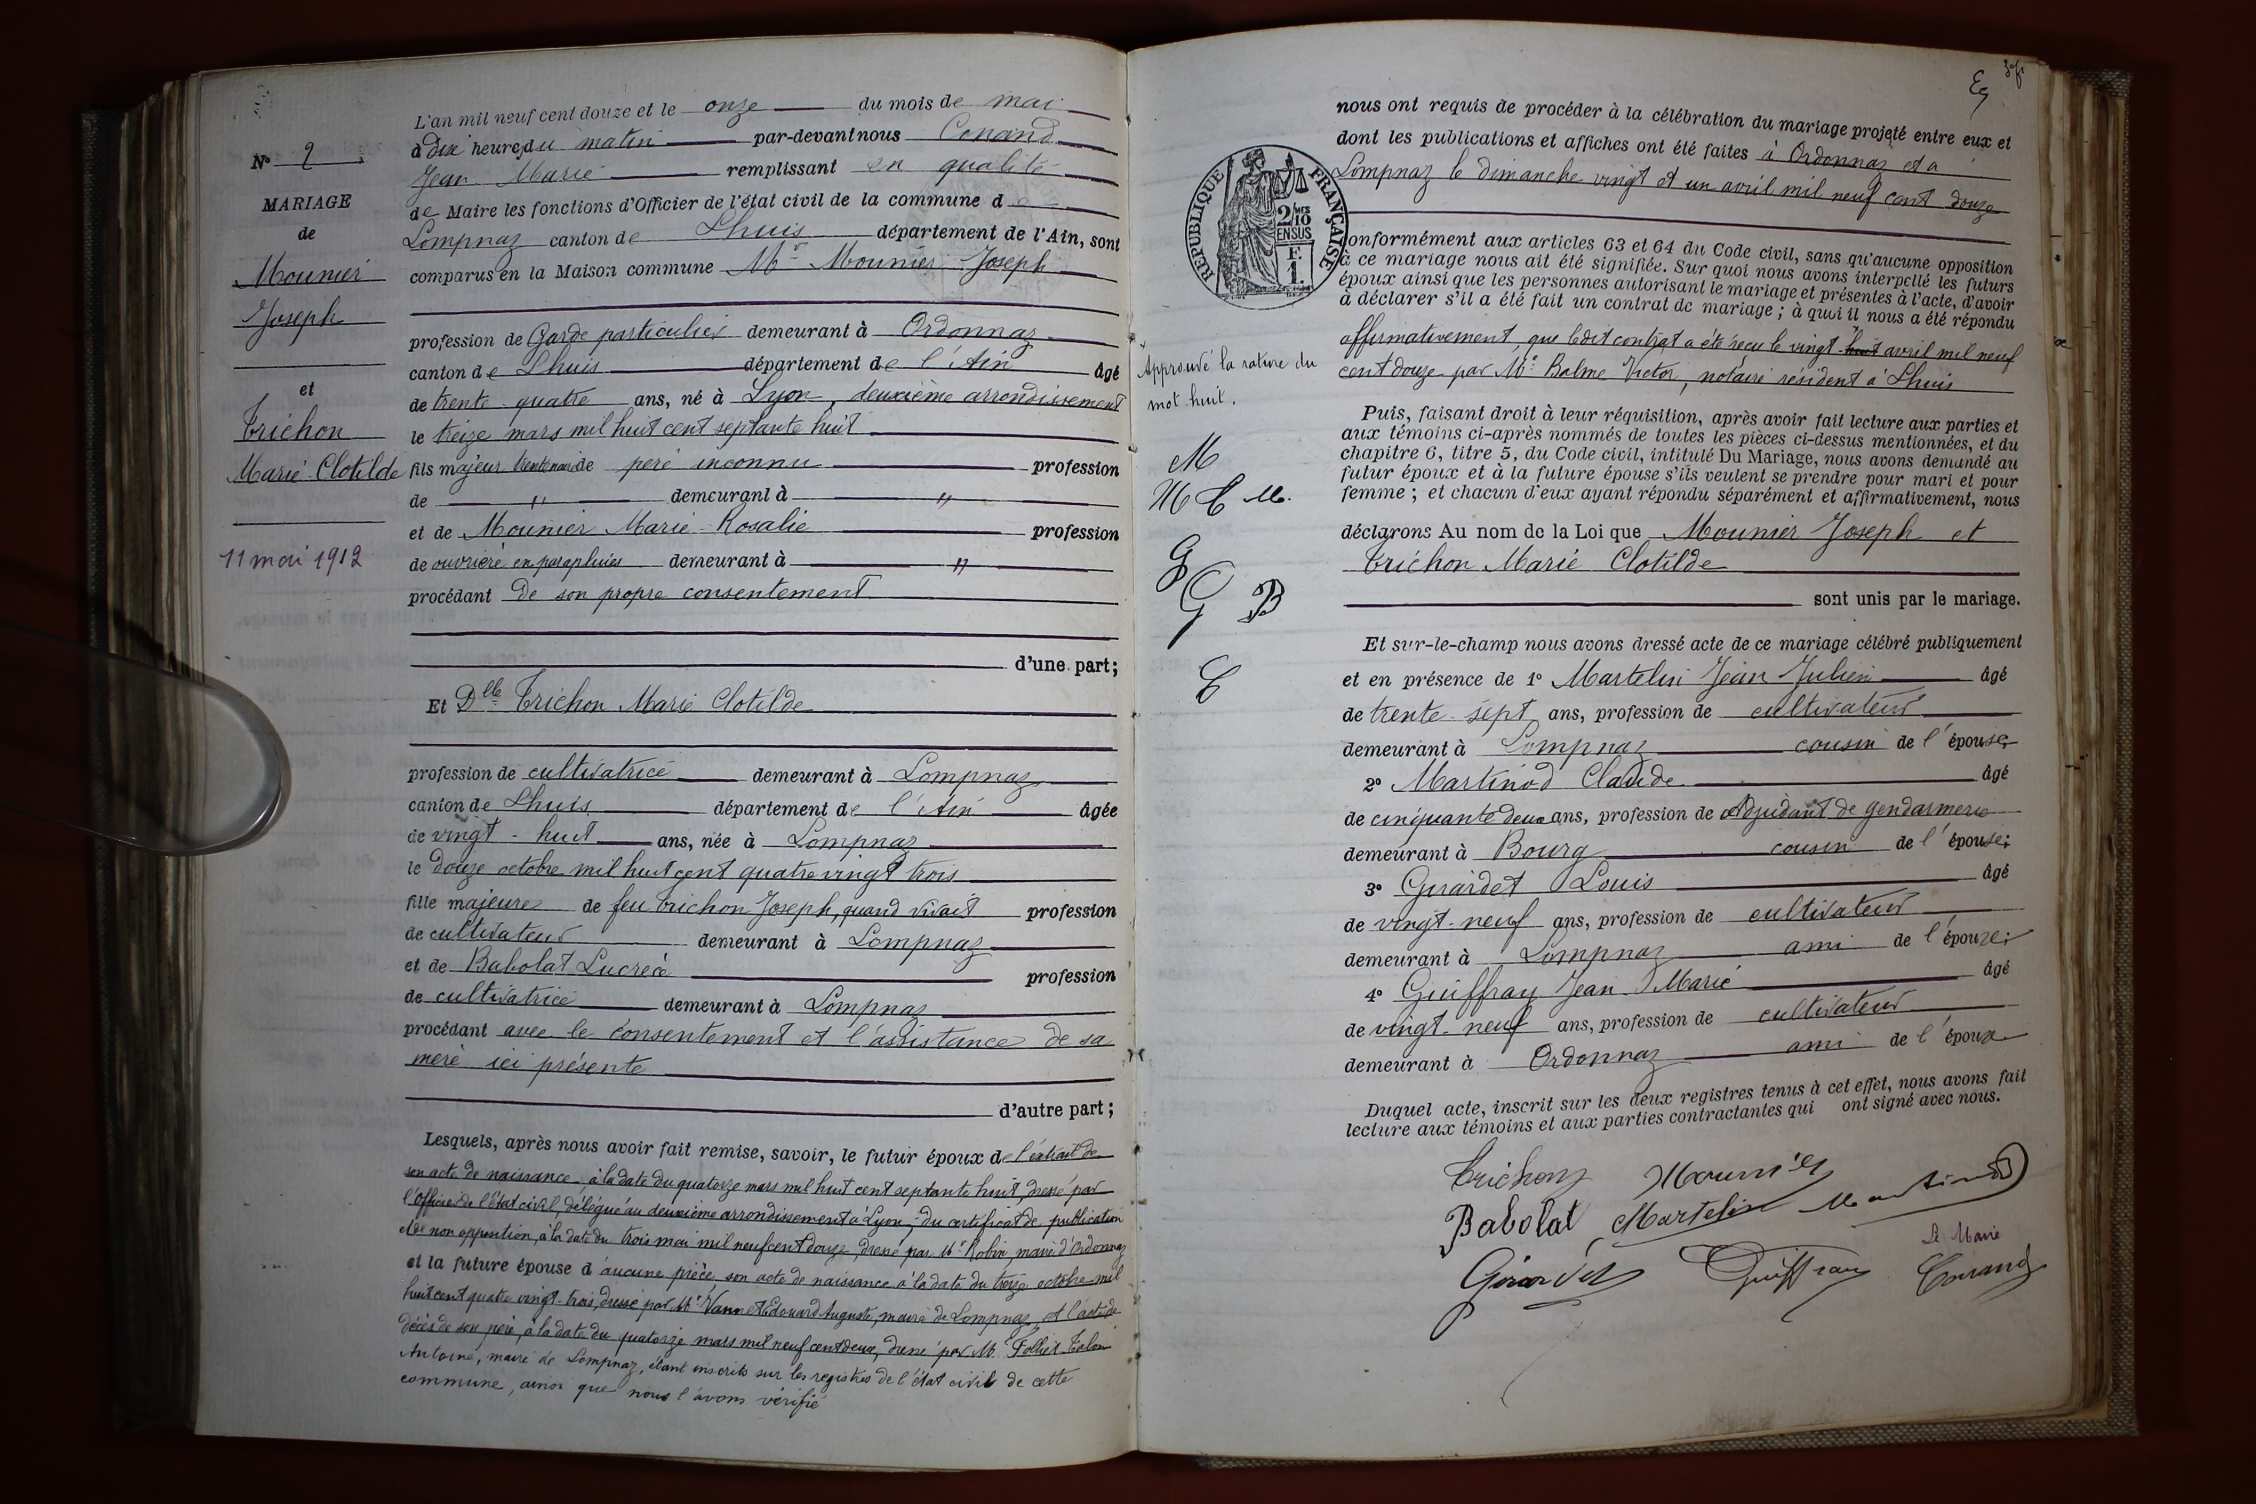 L'an mil neuf cent douze et le onze du mois de mai
à dix heures du matin par-devant nous Conand
Jean Marie remplissant en qualité
de Maire les fonctions d'Officier de l'état civil de la commune de
Lompnaz canton de Lhuis département de l'Ain, sont
comparus en la Maison commune Mr Mounier Joseph
profession de Garde particulier demeurant à Ordonnaz
canton de Lhuis département de l'Ain âgé
de trente quatre ans, né à Lyon, deuxième arrondissement
le treize mars mil huit cent septante huit
fils majeur trentenaire de père inconnu profession
de " demeurant à "
et de Mounier Marie-Rosalie profession
de ouvrière en parapluies demeurant à "
procédant de son propre consentement
d'une part;
Et Dlle Trichon Marie Clotilde
profession de cultivatrice demeurant à Lompnaz
canton de Lhuis département de l'Ain âgée
de vingt-huit ans, née à Lompnaz
le douze octobre mil huit cent quatre vingt trois
fille majeure de feu Trichon Joseph, quand vivait profession
de cultivateur demeurant à Lompnaz
et de Babolat Lucrèce profession
de cultivatrice demeurant à Lompnaz
procédant avec le consentement et l'assistance de sa
mère ici présente
d'autre part;
Lesquels, après nous avoir fait remise, savoir, le futur époux de l'extrait de
son acte de naissance à la date du quatorze mars mil huit cent septante huit, dressé par
l'officier de l'état civil, délégué au deuxième arrondissement à Lyon, du certificat de publication
et de non opposition, à la date du trois mai mil neuf cent douze, dressé par Mr Robin, maire d'Ordonnaz
et la future épouse d'aucune pièce, son acte de naissance à la date du treize octobre mil
huit cent quatre vingt-trois, dressé par Mr Vannet Edouard Auguste, maire de Lompnaz, et l'acte de
décès de son père, à la date du quatorze mars mil neuf cent deux, dressé par M. Follier
Antoine, maire de Lompnaz, étant inscrits sur les registres de l'état civil de cette
commune, ainsi que nous l'avons vérifié
No 2
MARIAGE
de
Mounier
Joseph
et
Trichon
Marie-Clotilde
11 mai 1912
nous ont requis de procéder à la célébration du mariage projeté entre eux et
dont les publications et affiches ont été faites à Ordonnaz et à
Lompnaz le dimanche vingt et un avril mil neuf cent douze
conformément aux articles 63 et 64 du Code civil, sans qu'aucune opposition
à ce mariage nous ait été signifiée. Sur quoi nous avons interpellé les futurs
époux ainsi que les personnes autorisant le mariage et présentes à l'acte, d'avoir
à déclarer s'il a été fait un contrat de mariage; à quoi il nous a été répondu
affirmativement, que ledit contrat a été reçu le vingt huit avril mil neuf
cent douze par Me Balme Victor, notaire résident à Lhuis
Puis, faisant droit à leur réquisition, après avoir fait lecture aux parties et
aux témoins ci-après nommés de toutes les pièces ci-dessus mentionnées, et du
chapitre 6, titre 5, du Code civil, intitulé Du Mariage, nous avons demandé au
futur époux et à la future épouse s'ils veulent se prendre pour mari et pour
femme; et chacun d'eux ayant répondu séparément et affirmativement, nous
déclarons Au nom de la Loi que Mounier Joseph et
Trichon Marie Clotilde
sont unis par le mariage.
Et sur-le-champ nous avons dressé acte de ce mariage célébré publiquement
et en présence de 1° Martelin Jean Julien âgé
de trente-sept ans, profession de cultivateur
demeurant à Lompnaz cousin de l'épouse
2° Martinod Claude âgé
de cinquante deux ans, profession de adjudant de gendarmerie
demeurant à Bourg cousin de l'épouse;
3° Girardet Louis âgé
de vingt-neuf ans, profession de cultivateur
demeurant à Lompnaz ami de l'épouse;
4° Guiffray Jean Marie âgé
de vingt-neuf ans, profession de cultivateur
demeurant à Ordonnaz ami de l'époux
Duquel acte, inscrit sur les deux registres tenus à cet effet, nous avons fait
lecture aux témoins et aux parties contractantes qui ont signé avec nous.
Trichon Mounier
Babolat Martelin Martinod
Le Maire
Girardet Guiffray Conand
RÉPUBLIQUE FRANÇAISE
2/10 MES
EN SUS
F.
1.
Approuvé la rature du
mot huit.
M
M C M.
G
G B
C